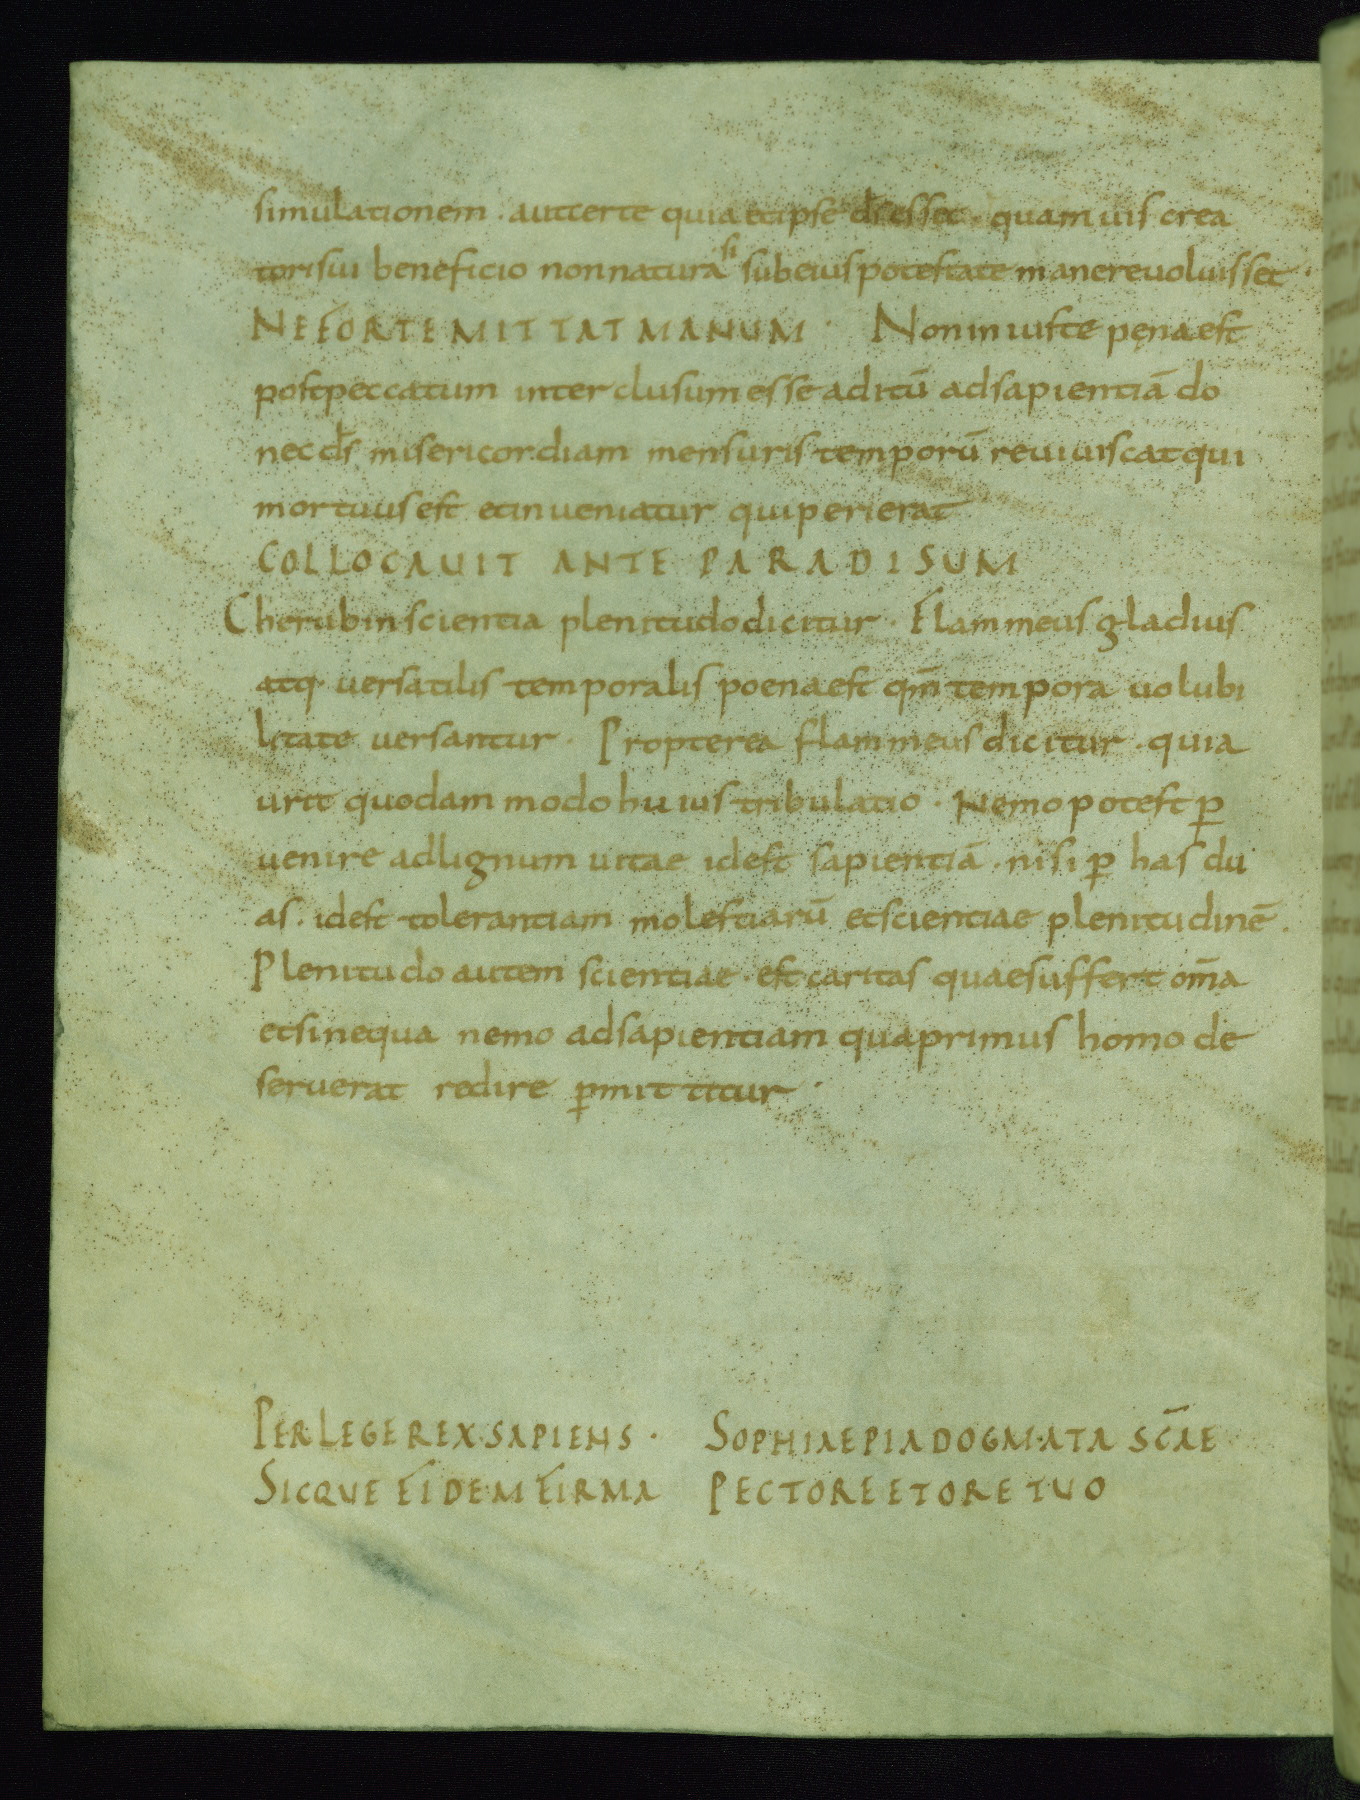 simulationem · aut certe quia et ipse d̄s esset · quamuis crea
toris sui beneficio non natura si sub eius potestate manere uoluisset ·
NE FORTE MITTAT MANUM · Non iniuste pęna est
post peccatum interclusum esse aditū ad sapientiā do
nec d̄s misericordiam mensuris temporū reuiuiscat qui
mortuus est et inueniatur qui perierat
COLLOCAUIT ANTE PARADISUM
Cherubin scientia plenitudo dicitur · Flammeus gladius
atq· uersatilis temporalis poena est qm̄ tempora uolubi
litate uersantur · Propterea flammeus dicitur · quia
urit quodam modo huius tribulatio · Nemo potest ꝑ
uenire ad lignum uitae id est sapientiā · nisi ꝑ has du
as · id est tolerantiam molestiarū et scientiae plenitudinē ·
Plenitudo autem scientiae · est caritas quae suffert om̄a
et sine qua nemo ad sapientiam qua primus homo de
seruerat redire ꝑmittitur ·
PERLEGE REX SAPIENS · SOPHIAE PIA DOGMATA SC̄AE
SICQUE FIDEM FIRMA PECTORE ET ORE TUO